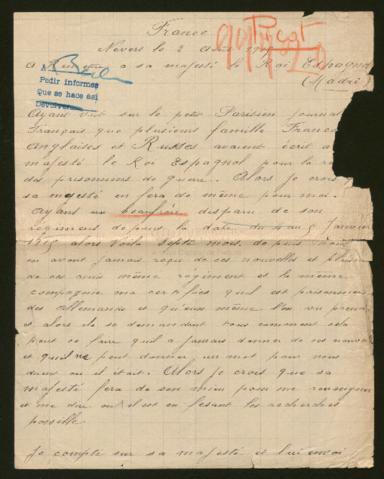 France
Nevers le 2 Août
a sa majesté le Roi Espagnol
(Madrid)
A
Pedir informes
Que se hace así
Devolverse
Ayant vut sur le petit Parisien journal
Français que plusieurs famille Franc
Anglaises et Russes avaient écrit a
majesté le Roi Espagnol pour la re
des prisonniers de guerre. Alors je crois
sa majesté en fera de même pour moi.
Ayant un beaufrère disparu de son
régiment depuis la date du 4 au 5 janvier
1915 alors voila sept mois de puis nous
en avont jamais reçu de ces nouvelles et plusieurs
de ces amis même régiment et la même
compagnie ma certifies quil est prisonnier
des Allemands et qu'eux même l'on vu prendre
et alors ils se demandent tous comment cela
peut ce faire quil a jamais donner de ces nouvelles
et quil ne peut donner un mot pour nous
dire ou il était. Alors je crois que sa
majesté fera de son mieu pour me renseigner
et me dire ou il est en fesant les recherches
possible.
Je compte sur sa majesté et lui envoi